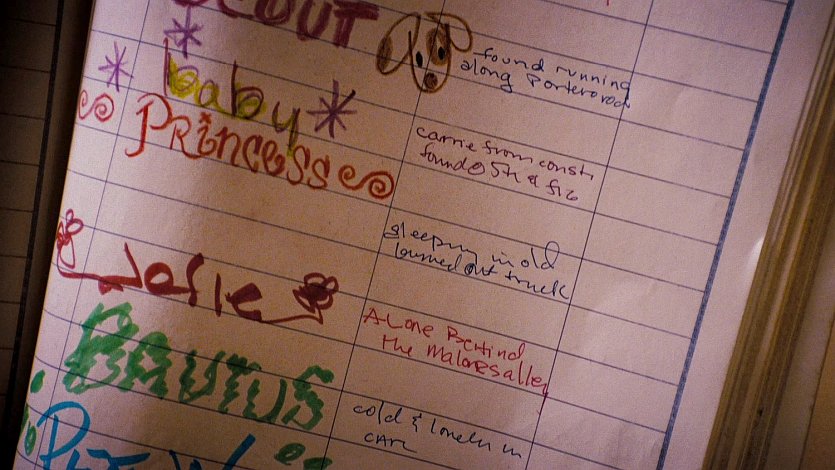 SCOUT
found running
along Portero road
baby
Princess
carrie from const.
found @ 5th & fig
sleeping in old
burned out truck
Josie
Alone Behind
the Malones alley
BRUTUS
cold & lonely in